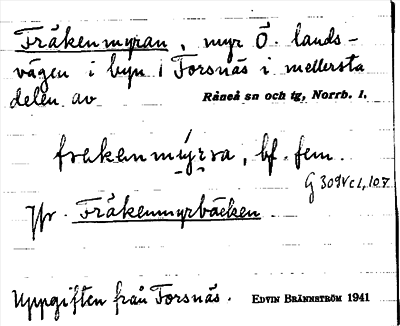 Fräkenmyran, myr Ö. lands-
vägen i byn 1 Forsnäs i mellersta
delen av Råneå sn och tg, Norrb. l.
frekenmýrsa, bf. fem.
G 309 V c 1, 107
Jfr. Fräkenmyrbäcken.
Uppgiften från Forsnäs. EDVIN BRÄNNSTRÖM 1941